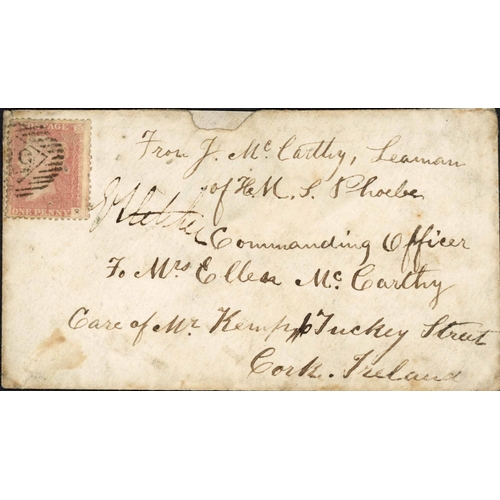 From J. McCarthy, Seaman
of H.M.S. Phoebe
Commanding Officer
To Mrs Ellen McCarthy
Care of Mr Kemp Tuckey Street
Cork. Ireland
ONE PENNY